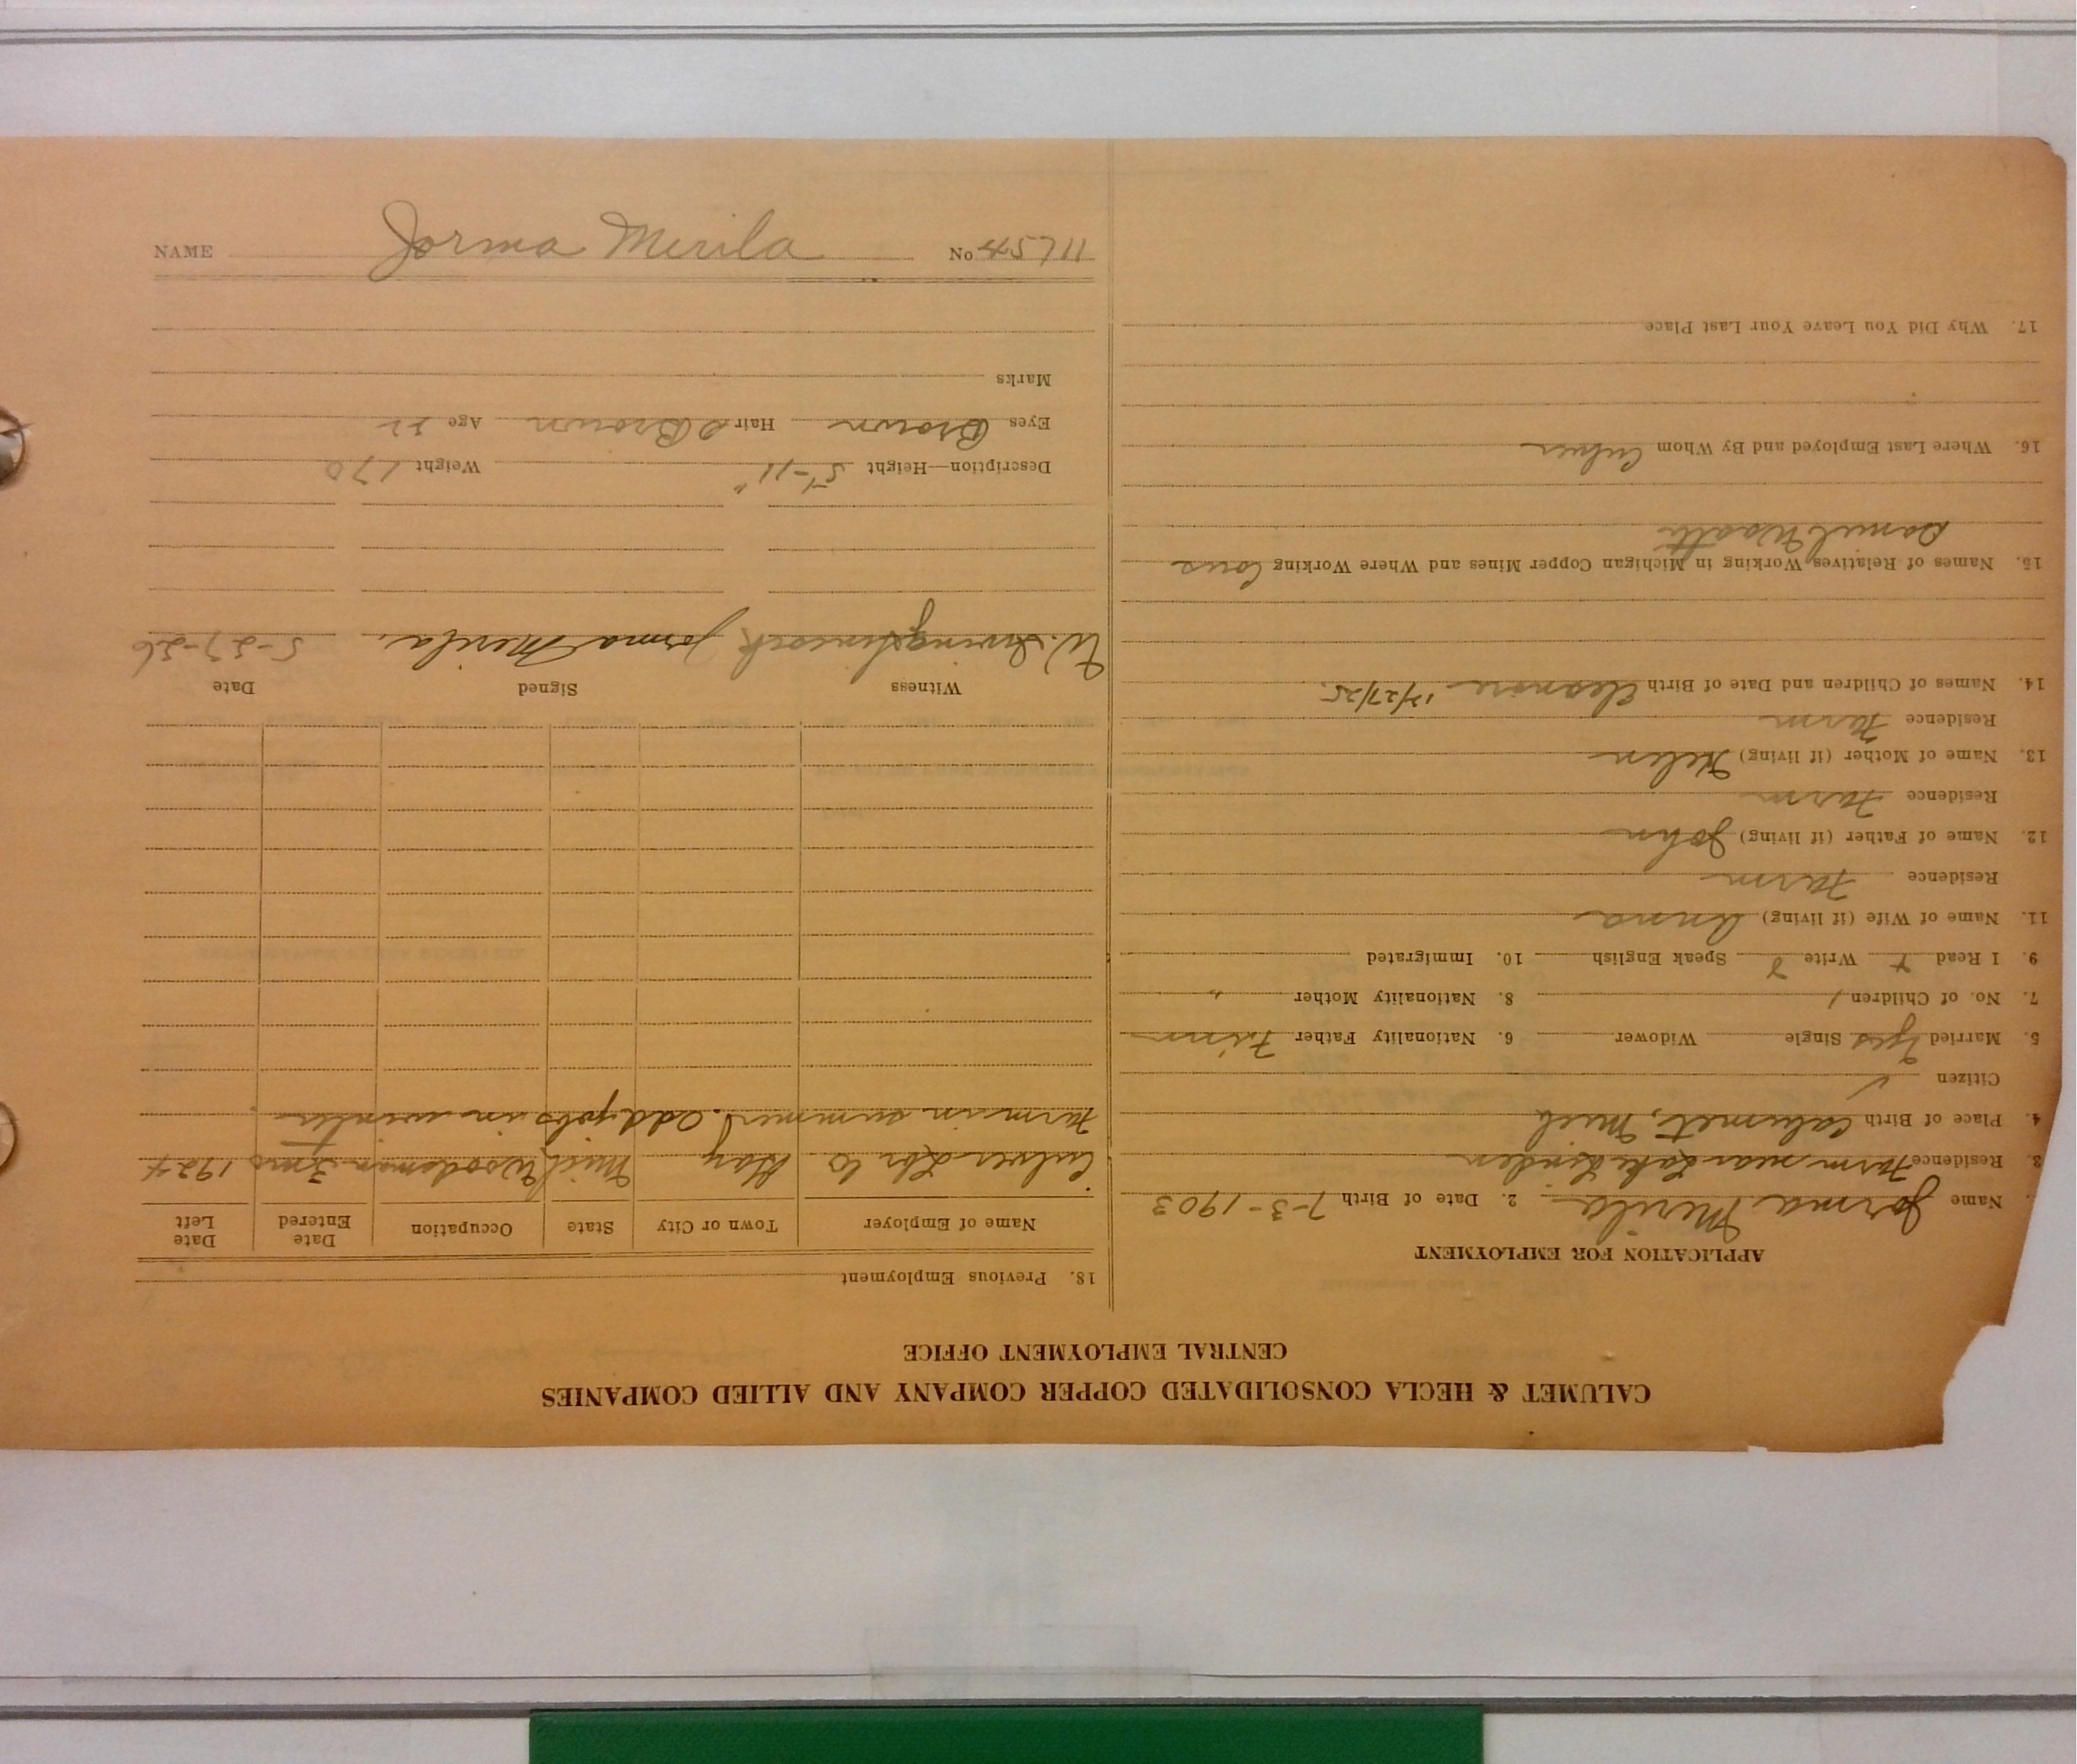 CALUMET & HECLA CONSOLIDATED COPPER COMPANY AND ALLIED COMPANIES
CENTRAL EMPLOYMENT OFFICE
APPLICATION FOR EMPLOYMENT
Name Jorma Merila 2. Date of Birth 7-3-1903
3. Residence Farm near Lake Linden
4. Place of Birth Calumet, Mich
Citizen ✓
5. Married Yes Single Widower 6. Nationality Father Finn
7. No. of Children 1 8. Nationality Mother "
9. I Read Write Speak English 10. Immigrated
11. Name of Wife (if living) Anna
Residence Farm
12. Name of Father (if living) John
Residence Farm
13. Name of Mother (if living) Helen
Residence Farm
14. Names of Children and Date of Birth Eleanore 12/27/25.
15. Names of Relatives Working in Michigan Copper Mines and Where Working Cous
Daniel
16. Where Last Employed and By Whom Culver
17. Why Did You Leave Your Last Place
18. Previous Employment
Name of Employer Town or City State Occupation Date Entered Date Left
Culver Lbr Co Gay Mich Woodsman 3 mos 1924
Farm in summer. Odd jobs in winter
Witness Signed Date
W. Jorma Merila. 5-27-26
Description—Height 5-11" Weight 170
Eyes Brown Hair Brown Age 22
Marks
NAME Jorma Merila No 45711